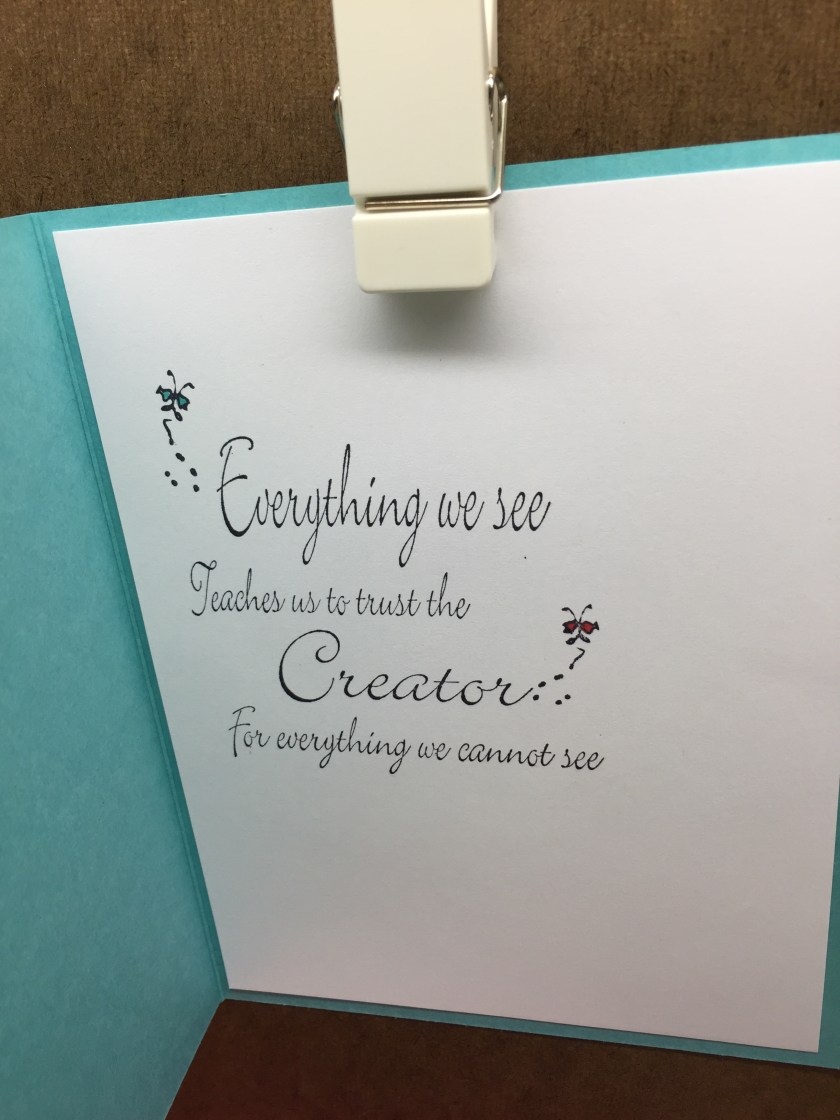 Everything we see
Teaches us to trust the
Creator
For everything we cannot see